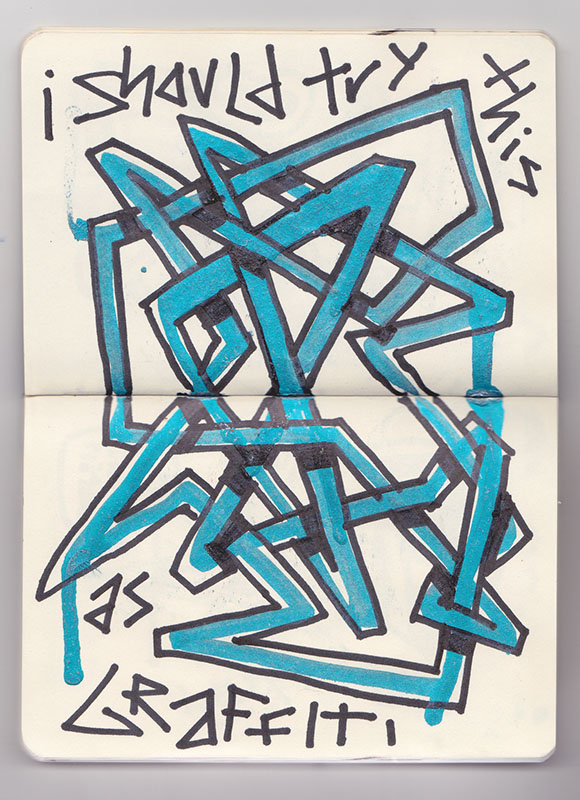 i should try
this
as
GRAFFITI